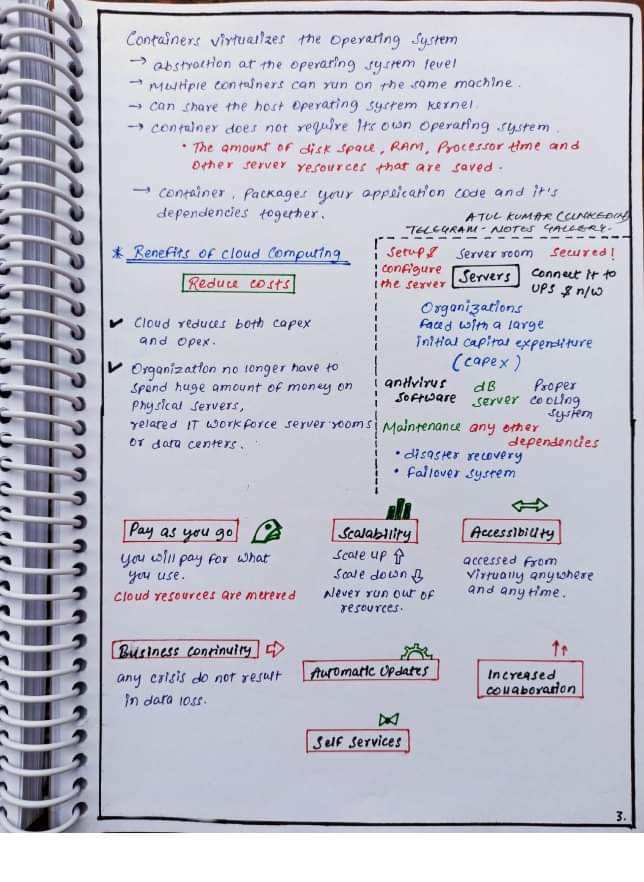 Containers virtualizes the Operating System
→ abstraction at the operating system level
→ Multiple containers can run on the same machine.
→ can share the host operating system kernel.
→ container does not require its own operating system.
• The amount of disk space, RAM, Processor time and
other server resources that are saved.
→ container, Packages your application code and it's
dependencies together.
ATUL KUMAR (LINKEDIN)
TELEGRAM - NOTES GALLERY.
* Benefits of Cloud Computing
Reduce costs
✔ Cloud reduces both capex
and opex.
✔ Organization no longer have to
spend huge amount of money on
physical servers,
related IT workforce server rooms
or data centers.
Setup & Server room Secured!
configure
the server Servers Connect it to
UPS & n/w
Organizations
faced with a large
initial capital expenditure
(capex)
antivirus dB Proper
software server cooling
system
Maintenance any other
dependencies
• disaster recovery
• failover system
Pay as you go
you will pay for what
you use.
Cloud resources are metered
Scalability
Scale up ⇧
Scale down ⇩
Never run out of
resources.
Accessibility
accessed from
virtually anywhere
and anytime.
Business continuity
any crisis do not result
in data loss.
Automatic Updates
Increased
collaboration
Self Services
3.